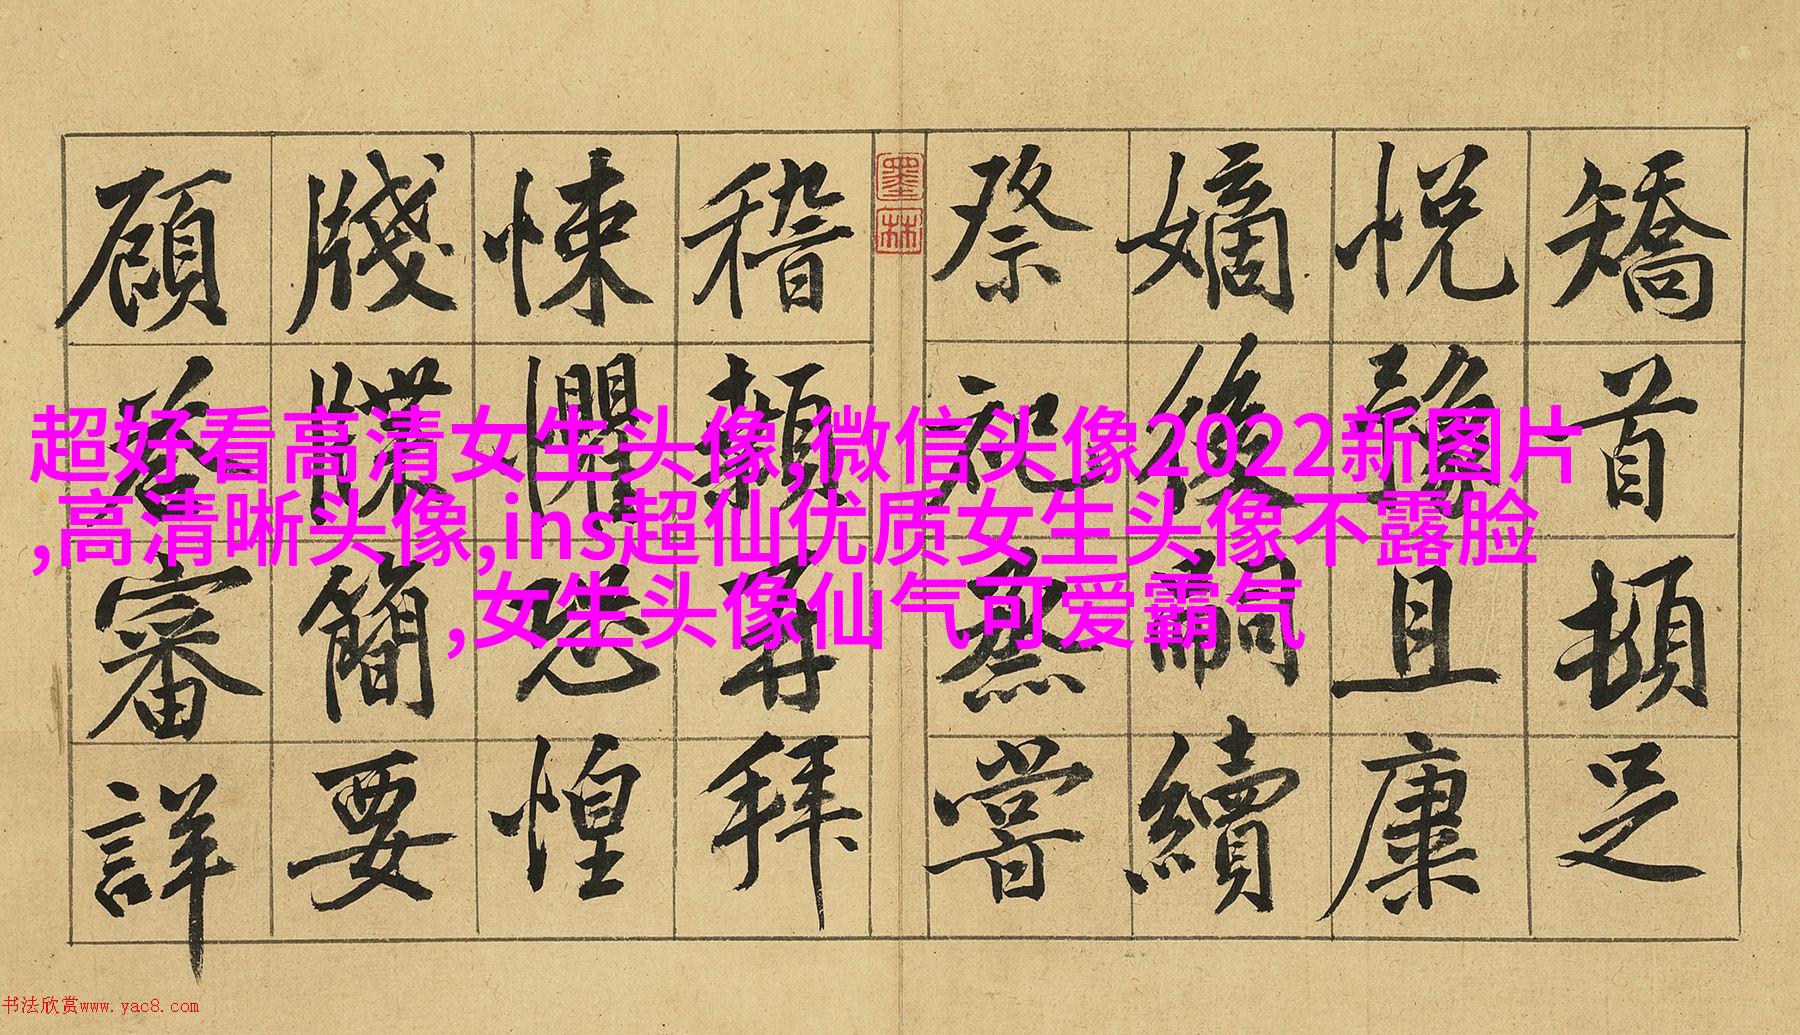 矯首頓足
悅豫且康
嫡後嗣續
祭祀烝嘗
墨林
稽顙再拜
悚懼恐惶
牋牒簡要
顧答審詳
超好看高清女生头像,微信头像2022新图片
,高清晰头像,ins超仙优质女生头像不露脸
,女生头像仙气可爱霸气
书法欣赏www.yac8.com